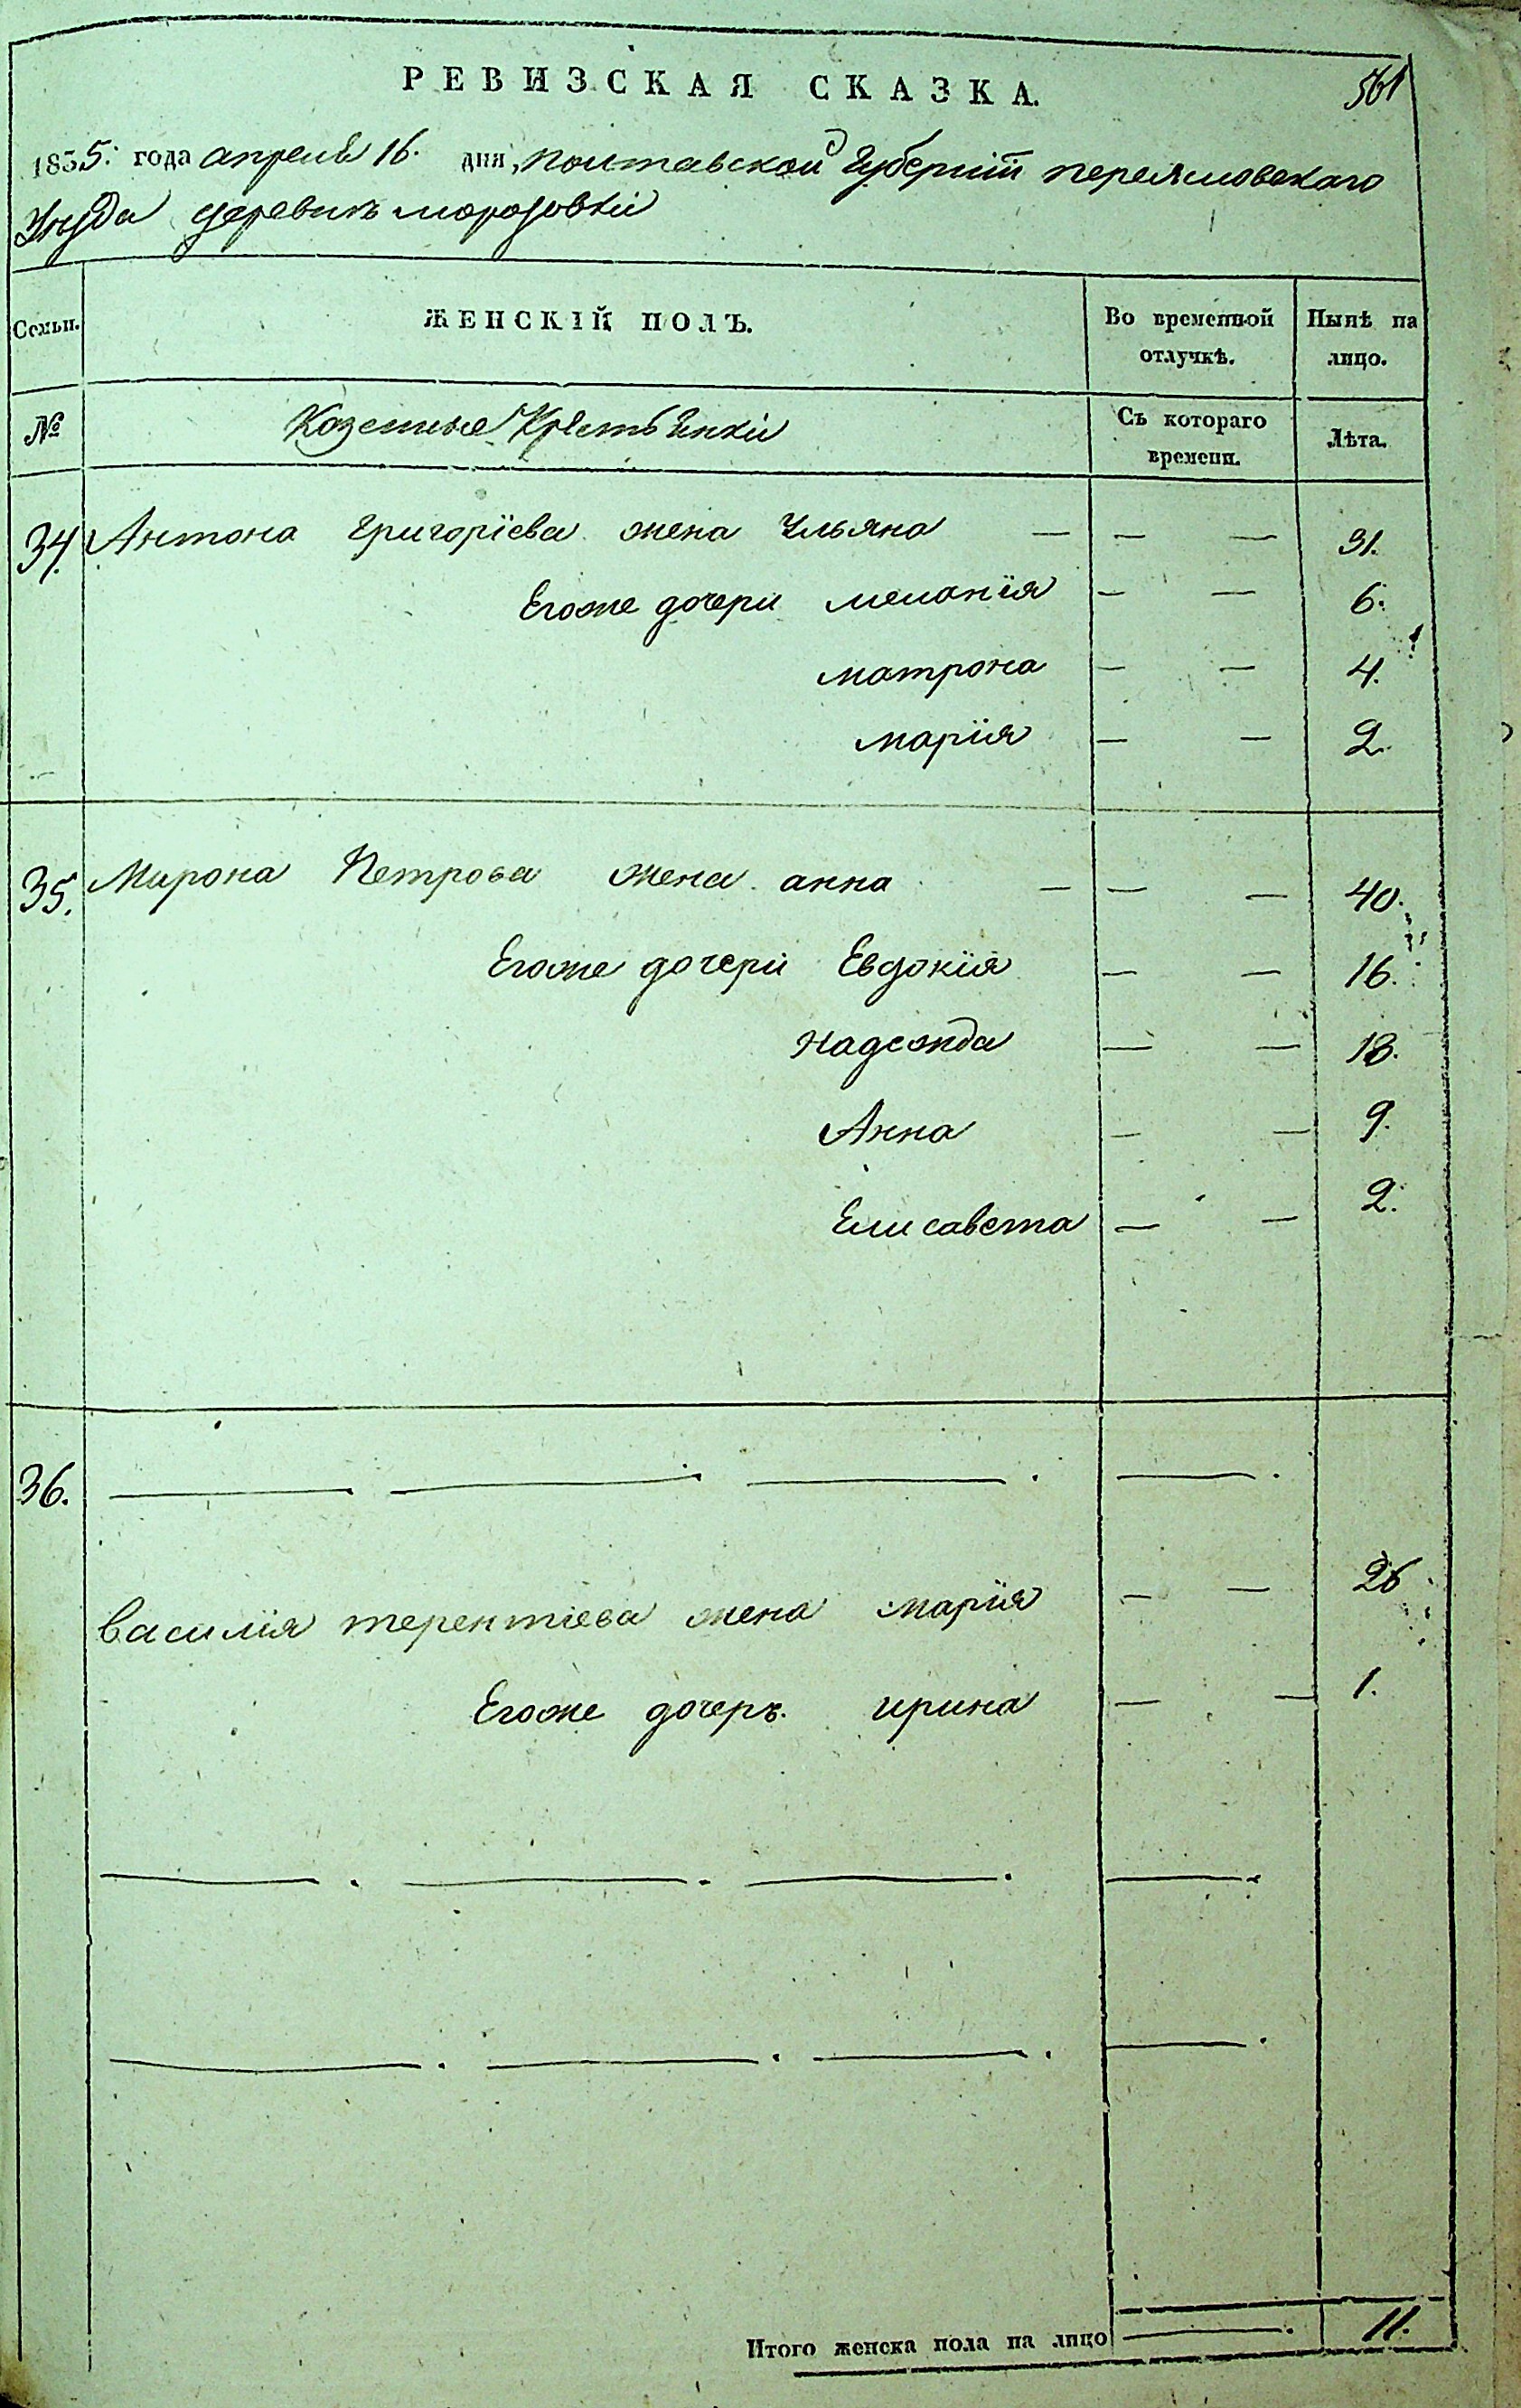 РЕВИЗСКАЯ СКАЗКА.
561
1835: года апреля 16. дня, полтавской Губернiи переяаловскаго
Уезда деревнѣ морозовкi
Семьи. ЖЕНСКІЙ ПОЛЪ. Во временной отлучкѣ. Нынѣ на лицо.
№ Казенные Крестьянкi Съ котораго времени. Лѣта.
34. Антона григорїева жена Ульяна — — — 31.
Егоже дочери меланїя — — 6.
матрона — — 4.
марїя — — 2.
35. Мирона Петрова жена анна — — — 40.
Егоже дочери Евдокїя — — 16.
надежда — — 13.
Анна — — 9.
Елисавета — — 2.
36. — — — —
василїя терентїева жена марїя — — 26
Егоже дочерь. ирина — — 1.
Итого женска пола на лицо — 11.